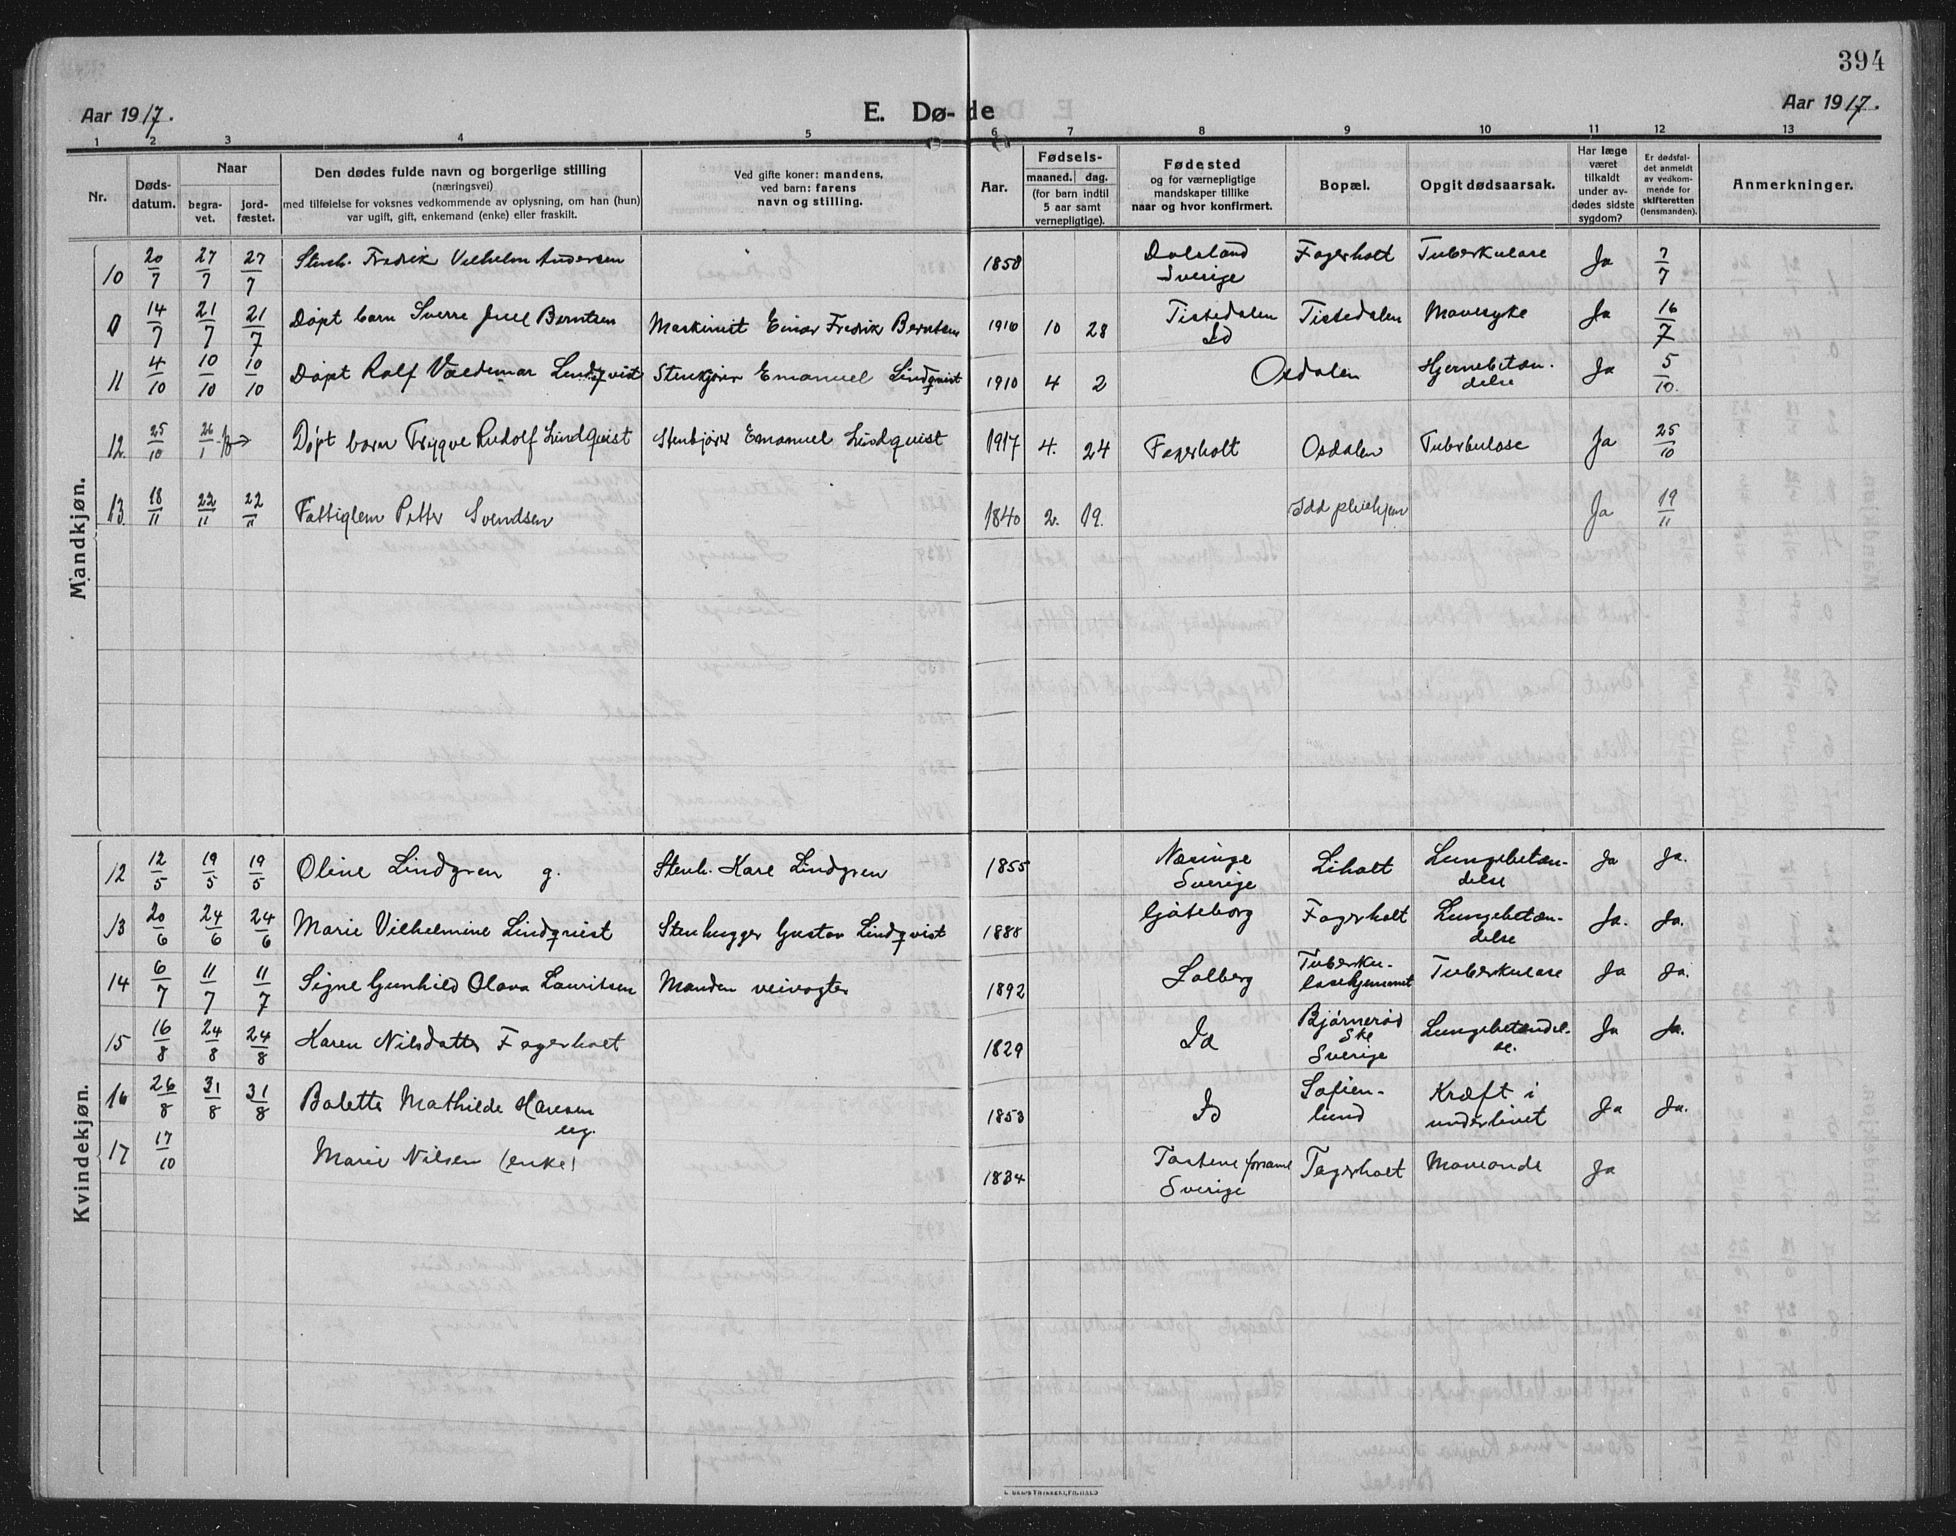 394
Aar 1917.
E. Dø- de
Aar 1917.
1 2 3 4 5 6 7 8 9 10 11 12 13
Nr.
Døds-
datum.
Naar
begra-
vet.
jord-
fæstet.
Den dødes fulde navn og borgerlige stilling
(næringsvei)
med tilføielse for voksnes vedkommende av oplysning, om han (hun)
var ugift, gift, enkemand (enke) eller fraskilt.
Ved gifte koner: mandens,
ved barn: farens
navn og stilling.
Aar.
Fødsels-
maaned. dag.
(for barn indtil
5 aar samt
vernepligtige).
Fødested
og for værnepligtige
mandskaper tillike
naar og hvor konfirmert.
Bopæl.
Opgit dødsaarsak.
Har læge
været
tilkaldt
under av-
dødes sidste
sygdom?
Er dødsfal-
det anmeldt
av vedkom-
mende for
skifteretten
(lensmanden).
Anmerkninger.
Mandkjøn.
10 20/7 27/7 27/7 Stenh. Fredrik Vilhelm Andersen 1858 Dalsland Sverige Fagerholt Tuberkulose Ja 7/7
0 14/7 21/7 21/7 Døpt barn Sverre Juel Berntsen Maskinist Einar Fredrik Berntsen 1916 10 28 Tistedalen Id Tistedalen Mavesyke Ja 16/7
11 4/10 10/10 10/10 Døpt Rolf Valdemar Lindqvist Stenkjører Emanuel Lindqvist 1910 4 2 Osdalen Hjernebetændelse Ja 5/10.
12. 25/10 26/1 18 → Døpt barn Trygve Rudolf Lindquist Stenkjører Emanuel Lindquist 1917 4. 24 Fagerholt Osdalen Tuberkulose Ja 25/10
13. 18/11 22/11 22/11 Fattiglem Petter Svendsen 1840 2. 19. Idd pleiehjem Ja 19/11
Kvindekjøn.
12 12/5 19/5 19/5 Oline Lindgren g. Stenh. Karl Lindgren 1855 Næsinge Sverige Liholt Lungebetændelse Ja Ja.
13 20/6 24/6 24/6 Marie Vilhelmine Lindqvist Stenhugger Gustav Lindqvist 1888 Gøteborg Fagerholt Lungebetændelse Ja. Ja.
14 6/7 11/7 11/7 Signe Gunhild Olava Lauritsen Manden veivogter 1892 Solberg Tuberkulosehjemmet Tuberkulose Ja Ja.
15 16/8 24/8 24/8 Karen Nilsdatter Fagerholt 1829 Id Bjørnerød Ske Sverige Lungebetændelse. Ja Ja.
16 26/8 31/8 31/8 Bolette Mathilde Hansen ug. 1853 Id Sofienlund Kræft i underlivet Ja Ja.
17 17/10 Marie Nilsen (enke) 1834 Sverige Fagerholt Maveonde Ja